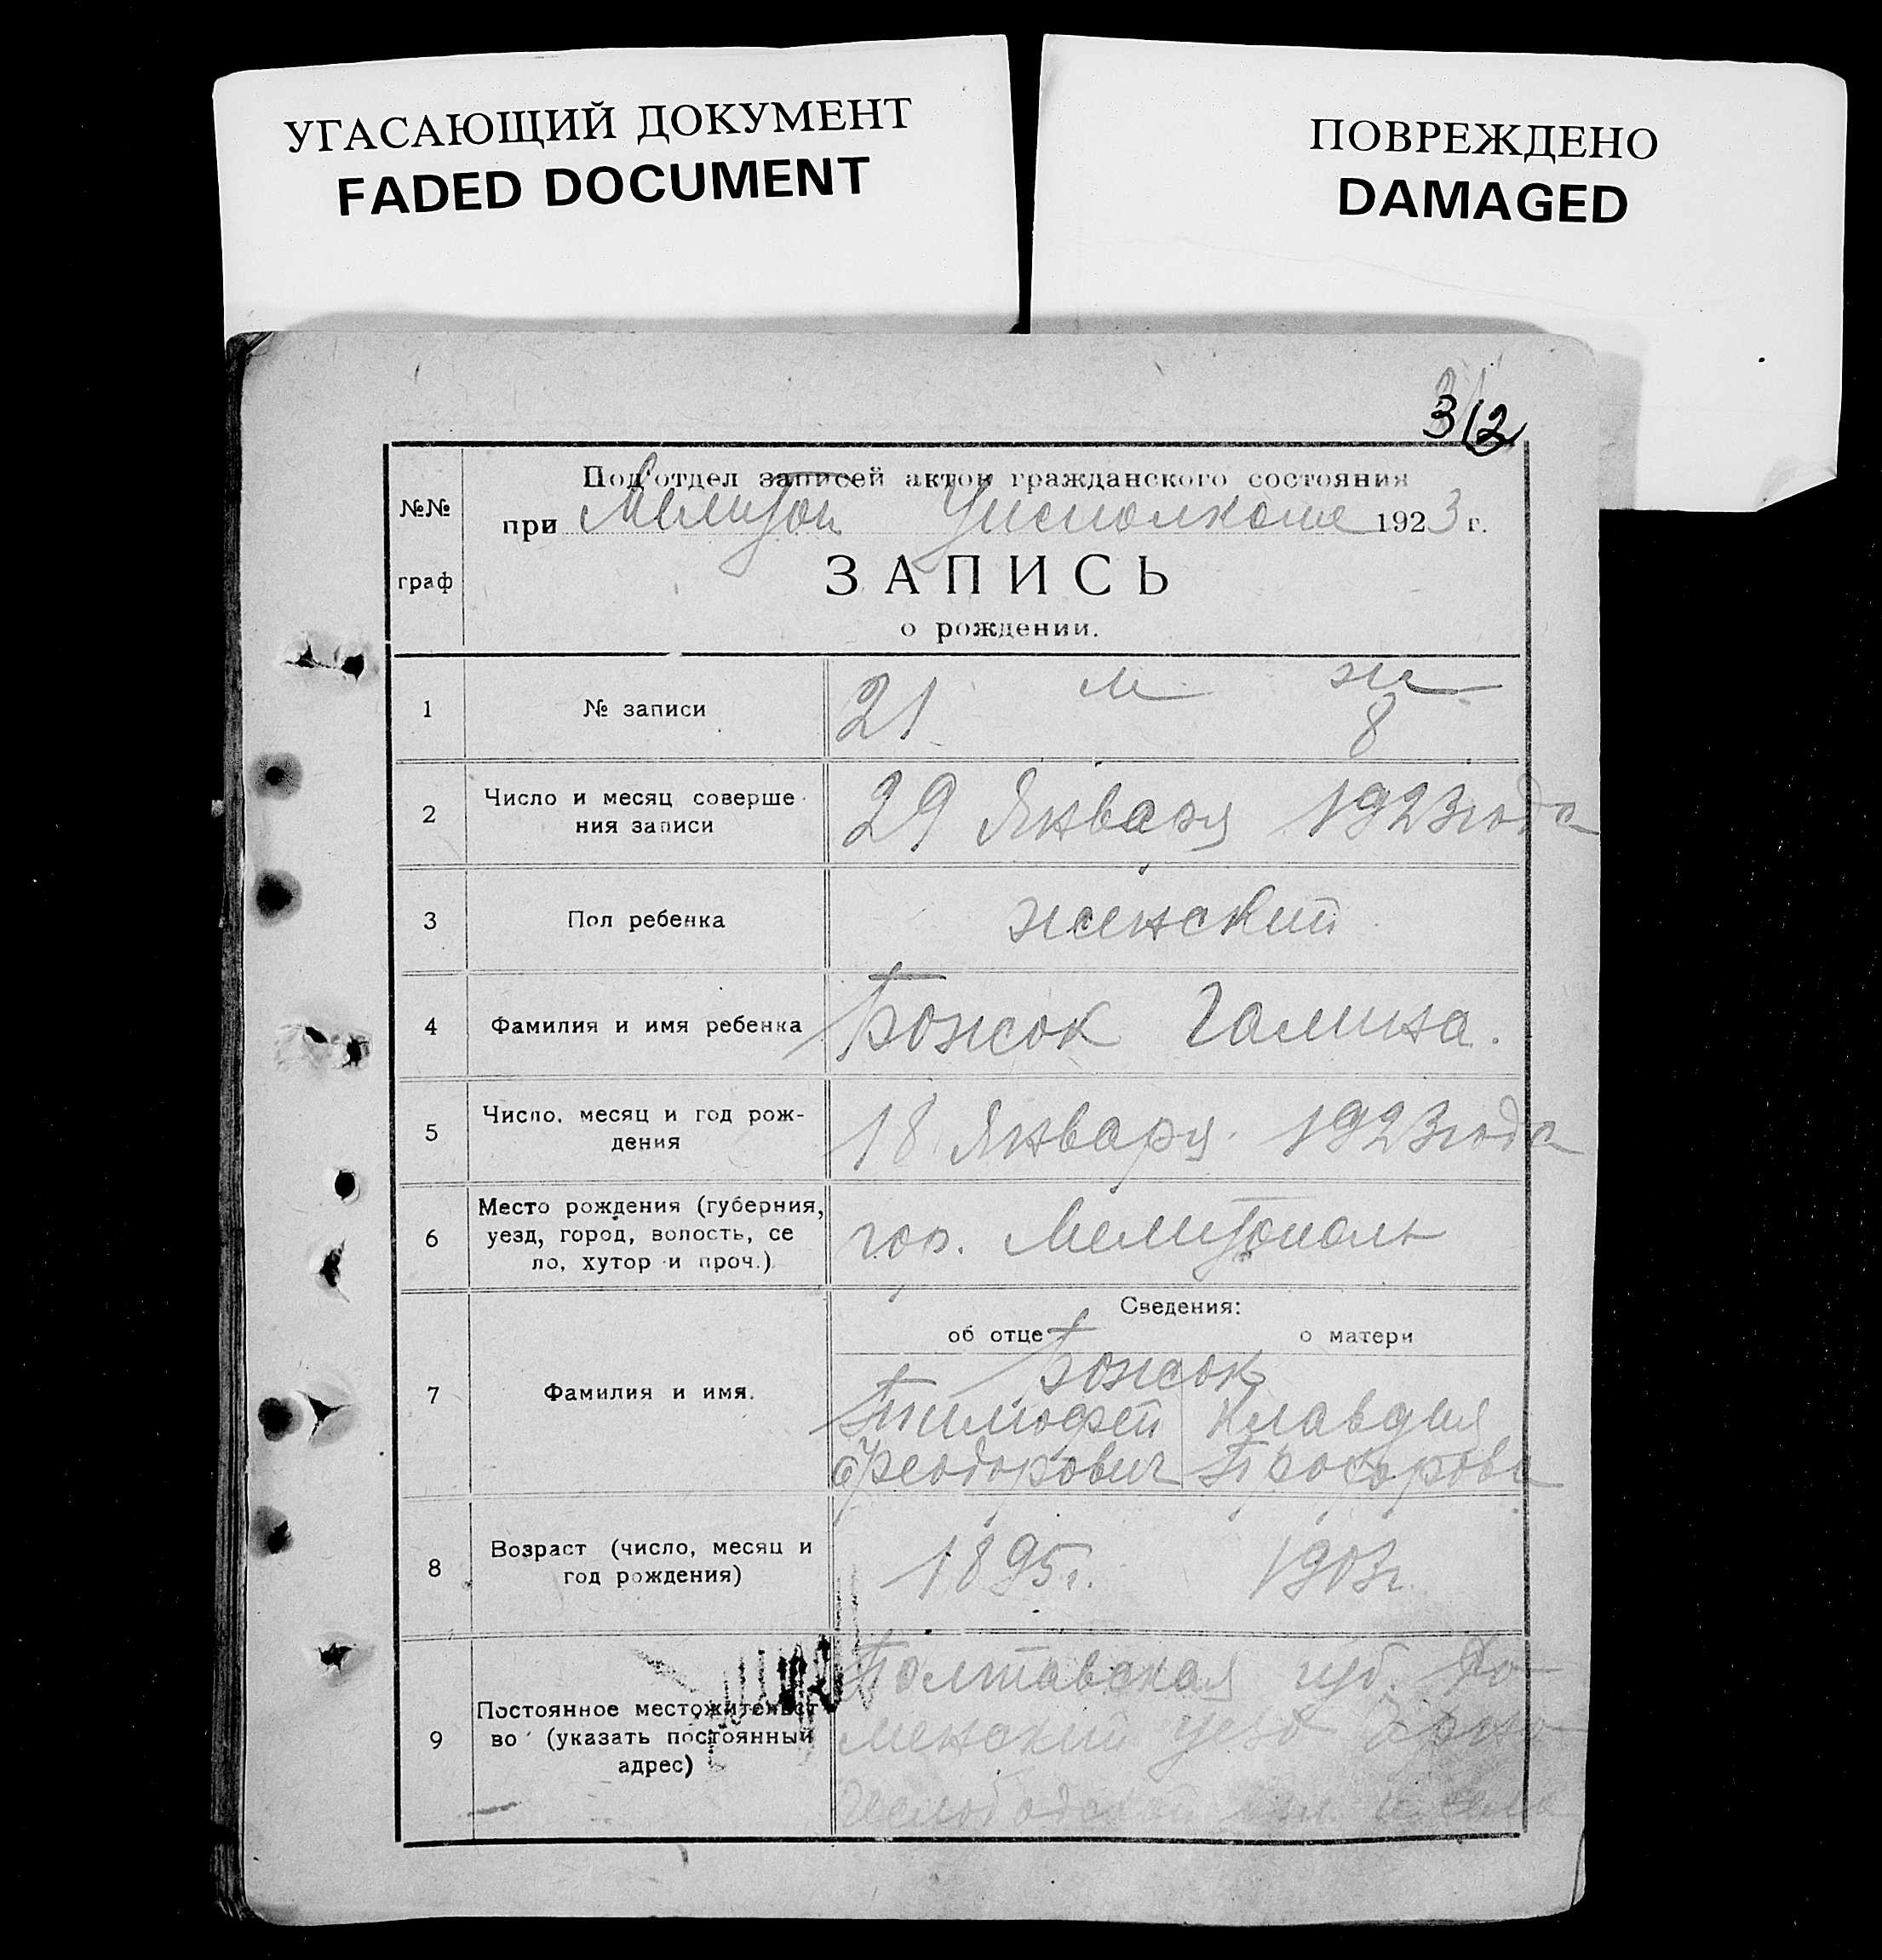 УГАСАЮЩИЙ ДОКУМЕНТ
FADED DOCUMENT
ПОВРЕЖДЕНО
DAMAGED
312
№№
граф
Под'отдел записей актов гражданского состояния
при Мелитоп. Уисполкоме 1923 г.
ЗАПИСЬ
о рождении.
1 № записи 21 м ж
8
2 Число и месяц соверше-
ния записи
29 Января 1923 года
3 Пол ребенка женский
4 Фамилия и имя ребенка Божок Галина.
5 Число, месяц и год рож-
дения
18 Января 1923 года
6 Место рождения (губерния,
уезд, город, волость, се
ло, хутор и проч.)
гор. Мелитополь
Сведения:
об отце о матери
7 Фамилия и имя.
Божок
Тимофей Клавдия
Феодорович Прохорова
8 Возраст (число, месяц и
год рождения)
1895 г. 1903 г.
9 Постоянное местожительст
во (указать постоянный
адрес)
Полтавская губ. Ро-
менский уезд